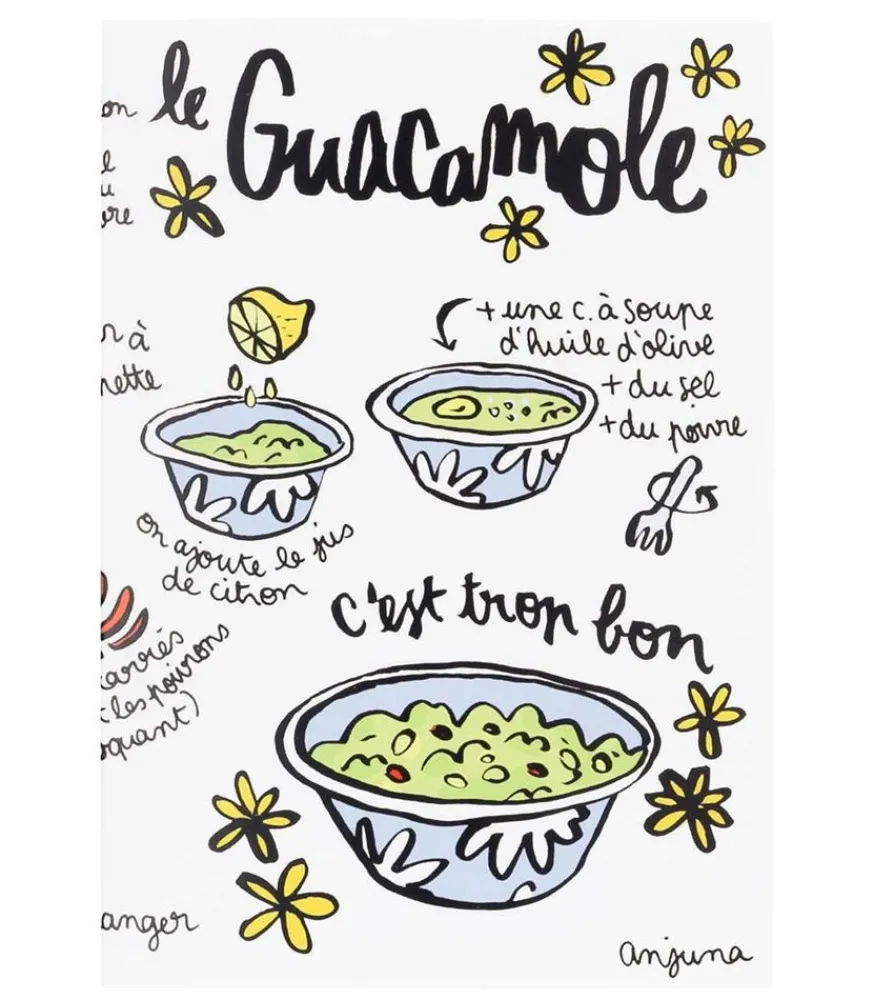 le Guacamole
+ une c. à soupe
d'huile d'olive
+ du sel
+ du poivre
on ajoute le jus
de citron
c'est trop bon
carrés
les poivrons
anjuna